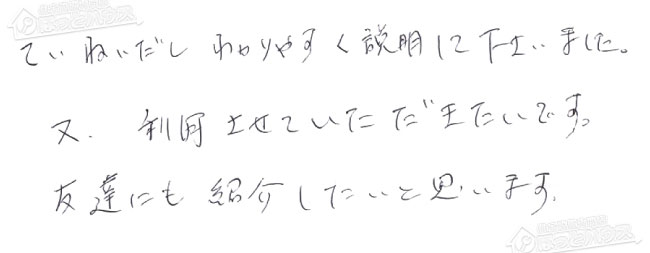 ていねいだし わかりやすく説明して下さいました。
又、利用させていただきたいです。
友達にも紹介したいと思います。